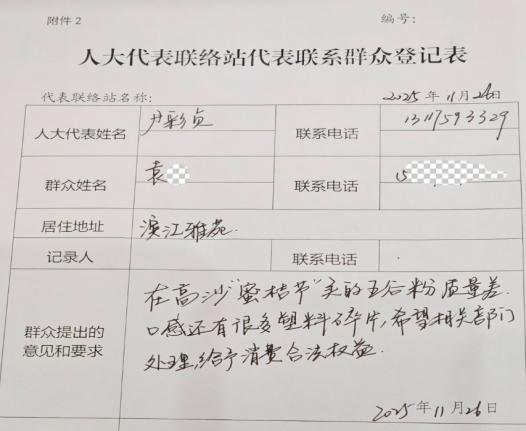 附件2
编号:
人大代表联络站代表联系群众登记表
代表联络站名称:
2025年11月26日
人大代表姓名 尹彩贞 联系电话 13117593329
群众姓名 袁 联系电话 15
居住地址 滨江雅苑.
记录人 联系电话
群众提出的
意见和要求
在高沙“蜜桔节”买的五谷粉质量差.
口感还有很多塑料碎片,希望相关部门
处理,给予消费合法权益.
2025年11月26日